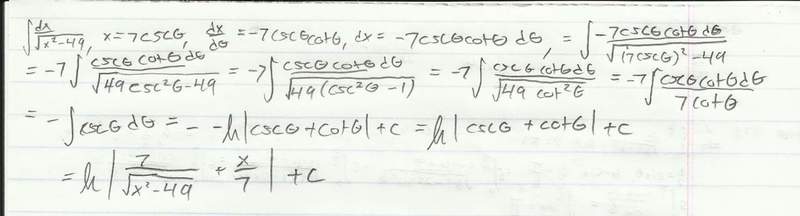 ∫ dx/√(x²-49), x = 7cscθ, dx/dθ = -7cscθcotθ, dx = -7cscθcotθ dθ, = ∫ -7cscθcotθ dθ/√((7cscθ)²-49)
= -7∫ cscθcotθ dθ/√(49csc²θ-49) = -7∫ cscθcotθ dθ/√(49(csc²θ-1)) = -7∫ cscθcotθ dθ/√(49cot²θ) = -7∫ cscθcotθ dθ/7cotθ
= -∫cscθ dθ = - -ln|cscθ+cotθ|+c = ln|cscθ+cotθ|+c
= ln|7/√(x²-49) + x/7| + c